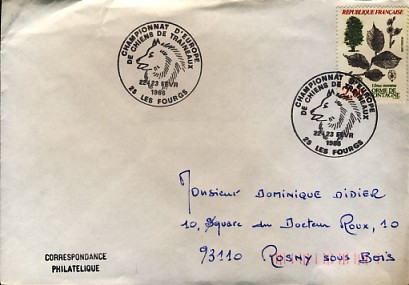 CHAMPIONNAT D'EUROPE
DE CHIENS DE TRAÎNEAUX
22-23 FEVR
1986
25 LES FOURGS
RÉPUBLIQUE FRANÇAISE
CHAMPIONNAT D'EUROPE
DE CHIENS DE TRAÎNEAUX
22-23 FEVR
1986
25 LES FOURGS
ORME DE
MONTAGNE
Monsieur DOMINIQUE DIDIER
10, Square du Docteur Roux, 10
93110 ROSNY SOUS BOIS
CORRESPONDANCE
PHILATELIQUE